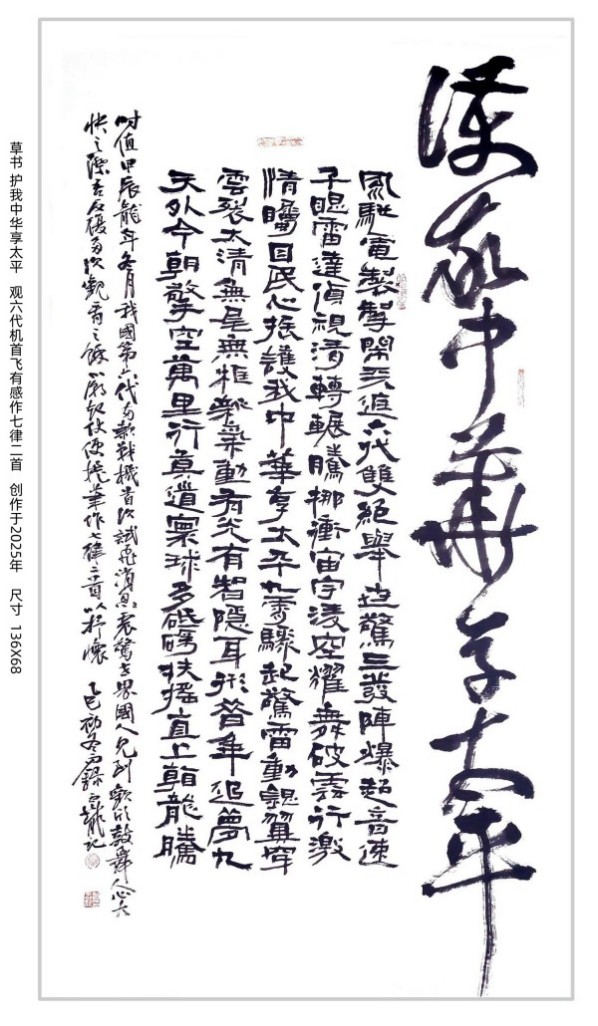 護我中華享太平
風馳電製擊開天進六代雙絕舉世驚三發陣爆超音速
子眼雷達偵視清轉輾騰挪衝宙宇凌空耀舞破雲行激
情矚目民心振護我中華享太平九霄驟起驚雷動銀翼穿
雲裂太清無尾無框新氣動有光有智隱耳形昔年追夢九
天外今朝擎空萬里行莫道寰球多砥礪扶搖直上翱龍騰
时值甲辰龍年冬月我國第六代兩款戰機首次試飛消息震驚世界國人見到歡欣鼓舞人心大
快之際吾反復多次觀看之餘心潮起伏便提筆作七律二首以抒懷 乙巳初冬 錄 龍記
草书 护我中华享太平 观六代机首飞有感作七律二首 创作于2025年 尺寸 136X68